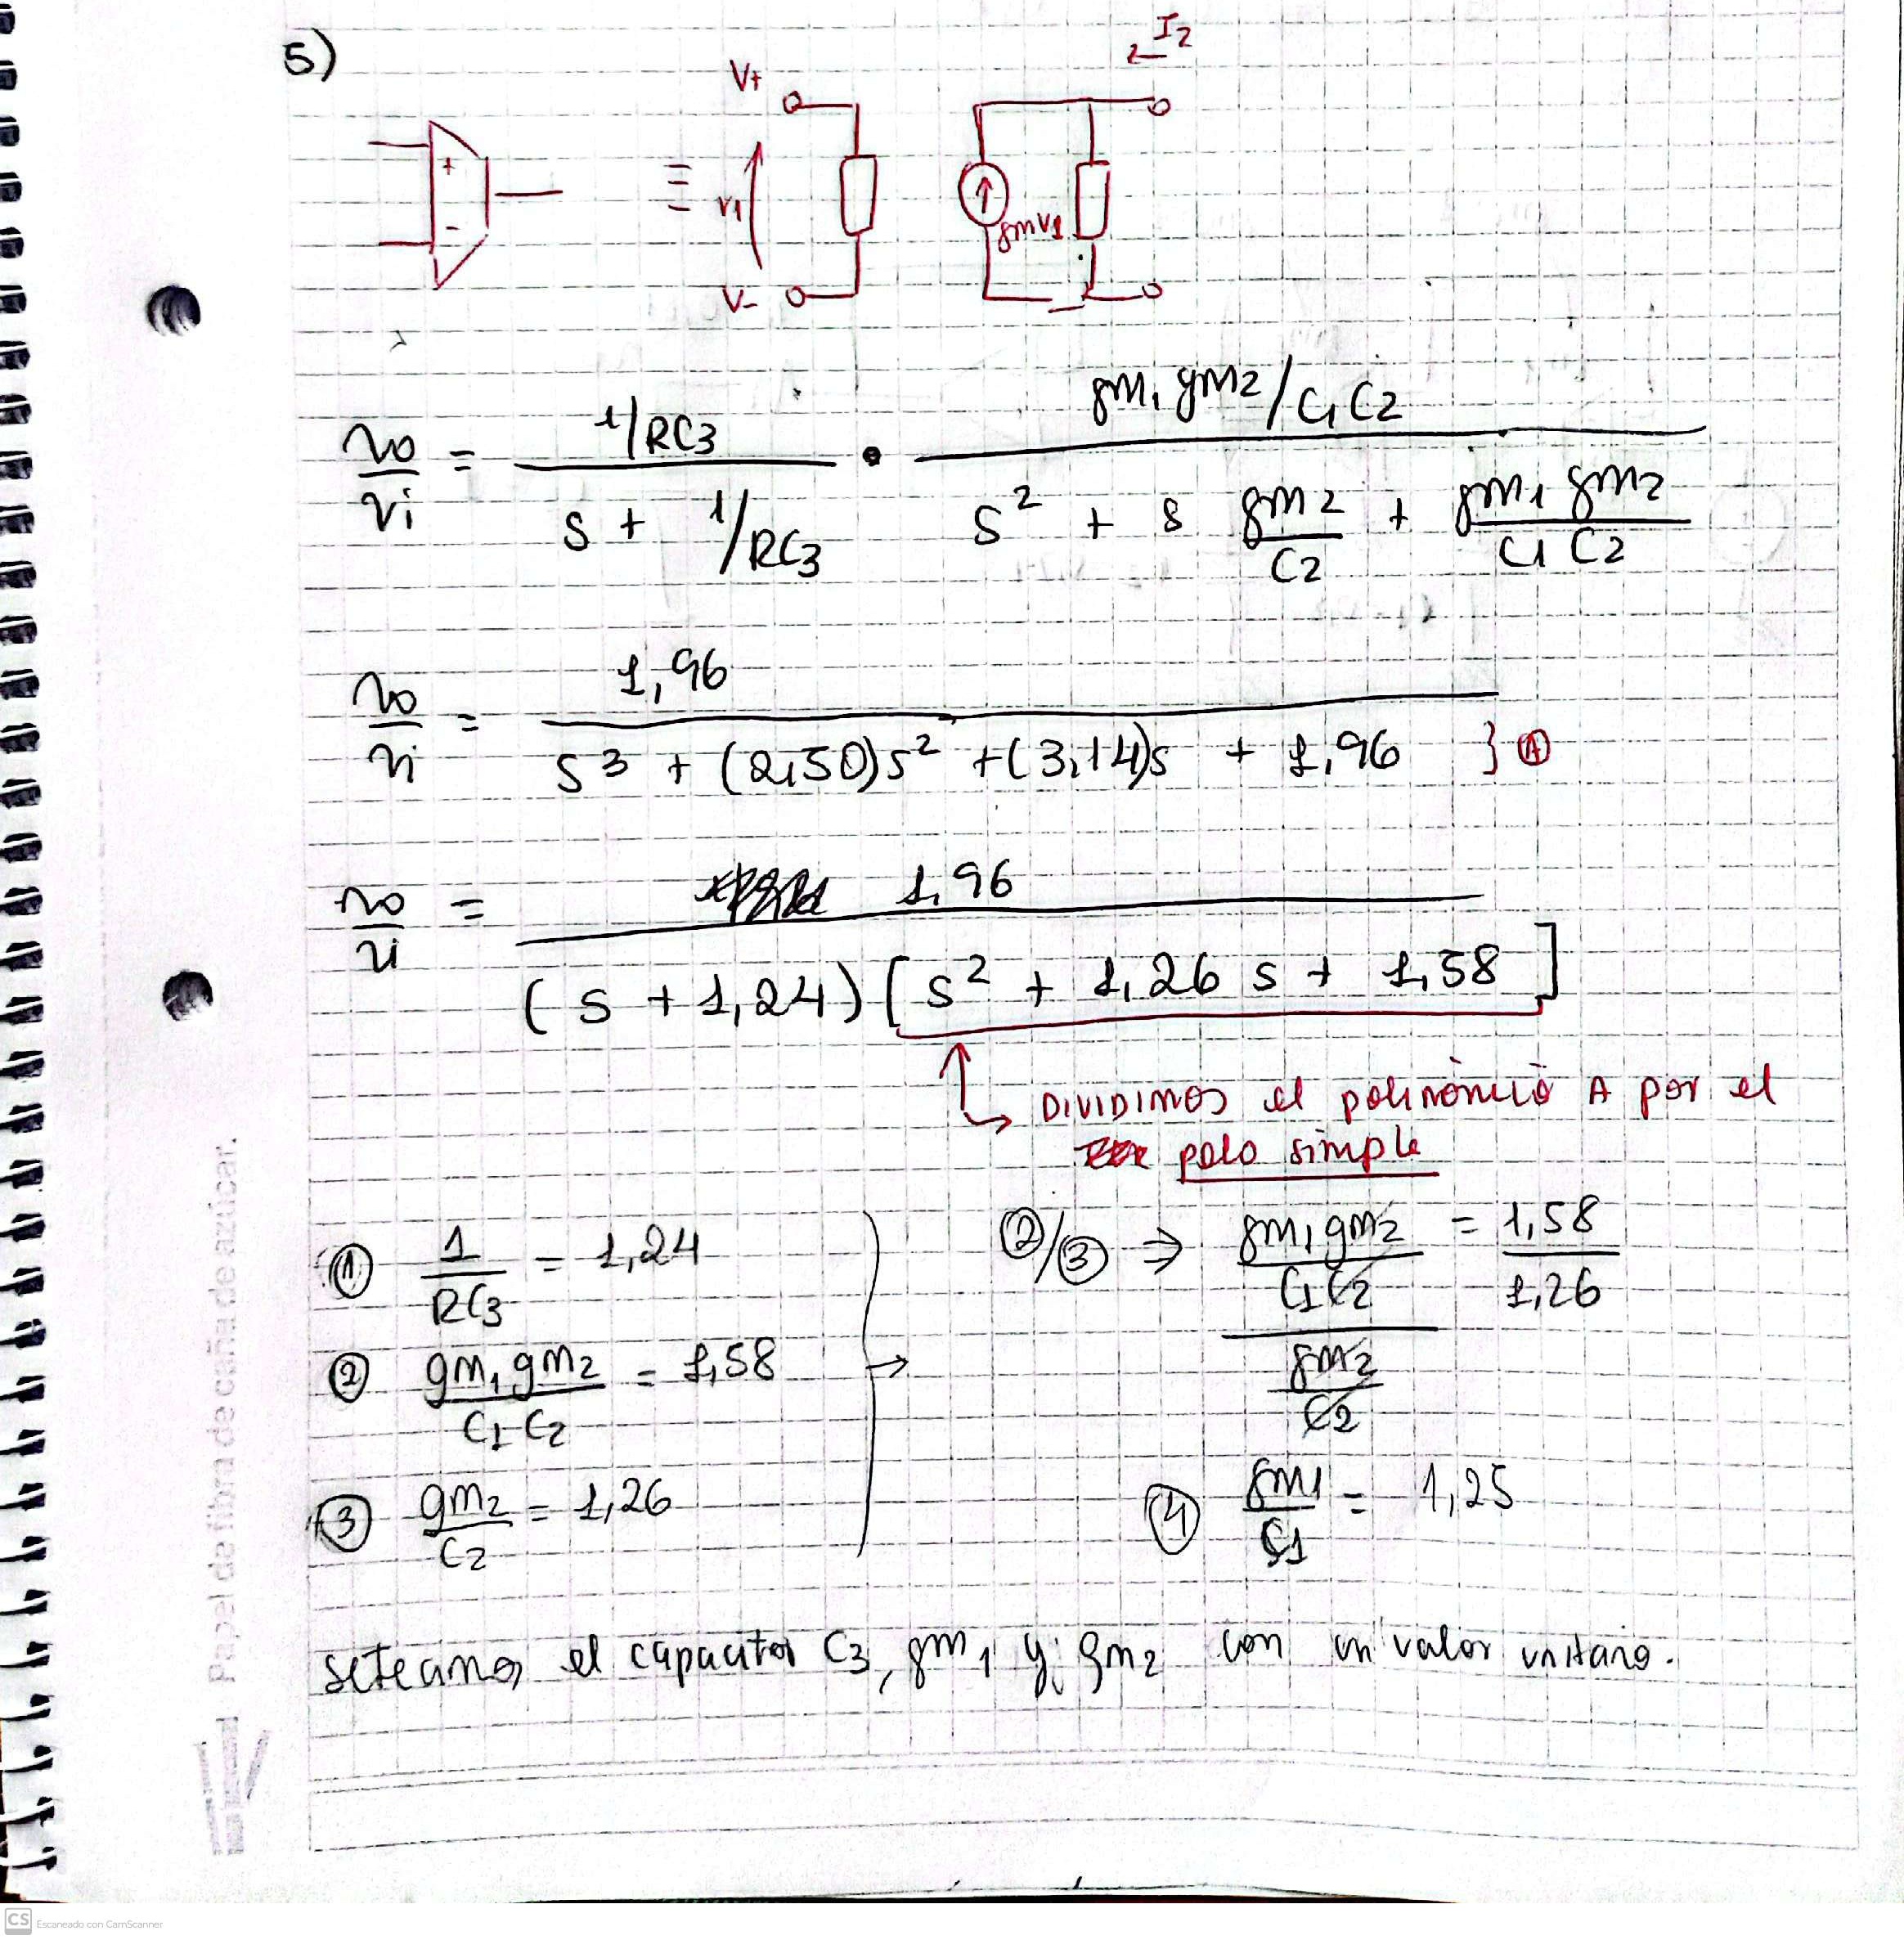 5)
I2
V+
+
-
≡
v1
gmv1
V-
vo/vi = (1/RC3)/(s + 1/RC3) • (gm1 gm2/C1C2)/(s² + s gm2/C2 + gm1 gm2/C1 C2)
vo/vi = 1,96/(s3 + (2,50)s² + (3,14)s + 1,96) } A
vo/vi = 1,96/((s + 1,24)[s² + 1,26 s + 1,58])
DIVIDIMOS el polinómio A por el
polo simple
① 1/RC3 = 1,24
② gm1 gm2/C1 C2 = 1,58
③ gm2/C2 = 1,26
②/③ ⇒ (gm1 gm2/C1C2)/(gm2/C2) = 1,58/1,26
④ gm1/C1 = 1,25
seteamos el capacitor C3, gm1 y gm2 con un valor unitario.
Papel de fibra de caña de azúcar.
CS Escaneado con CamScanner